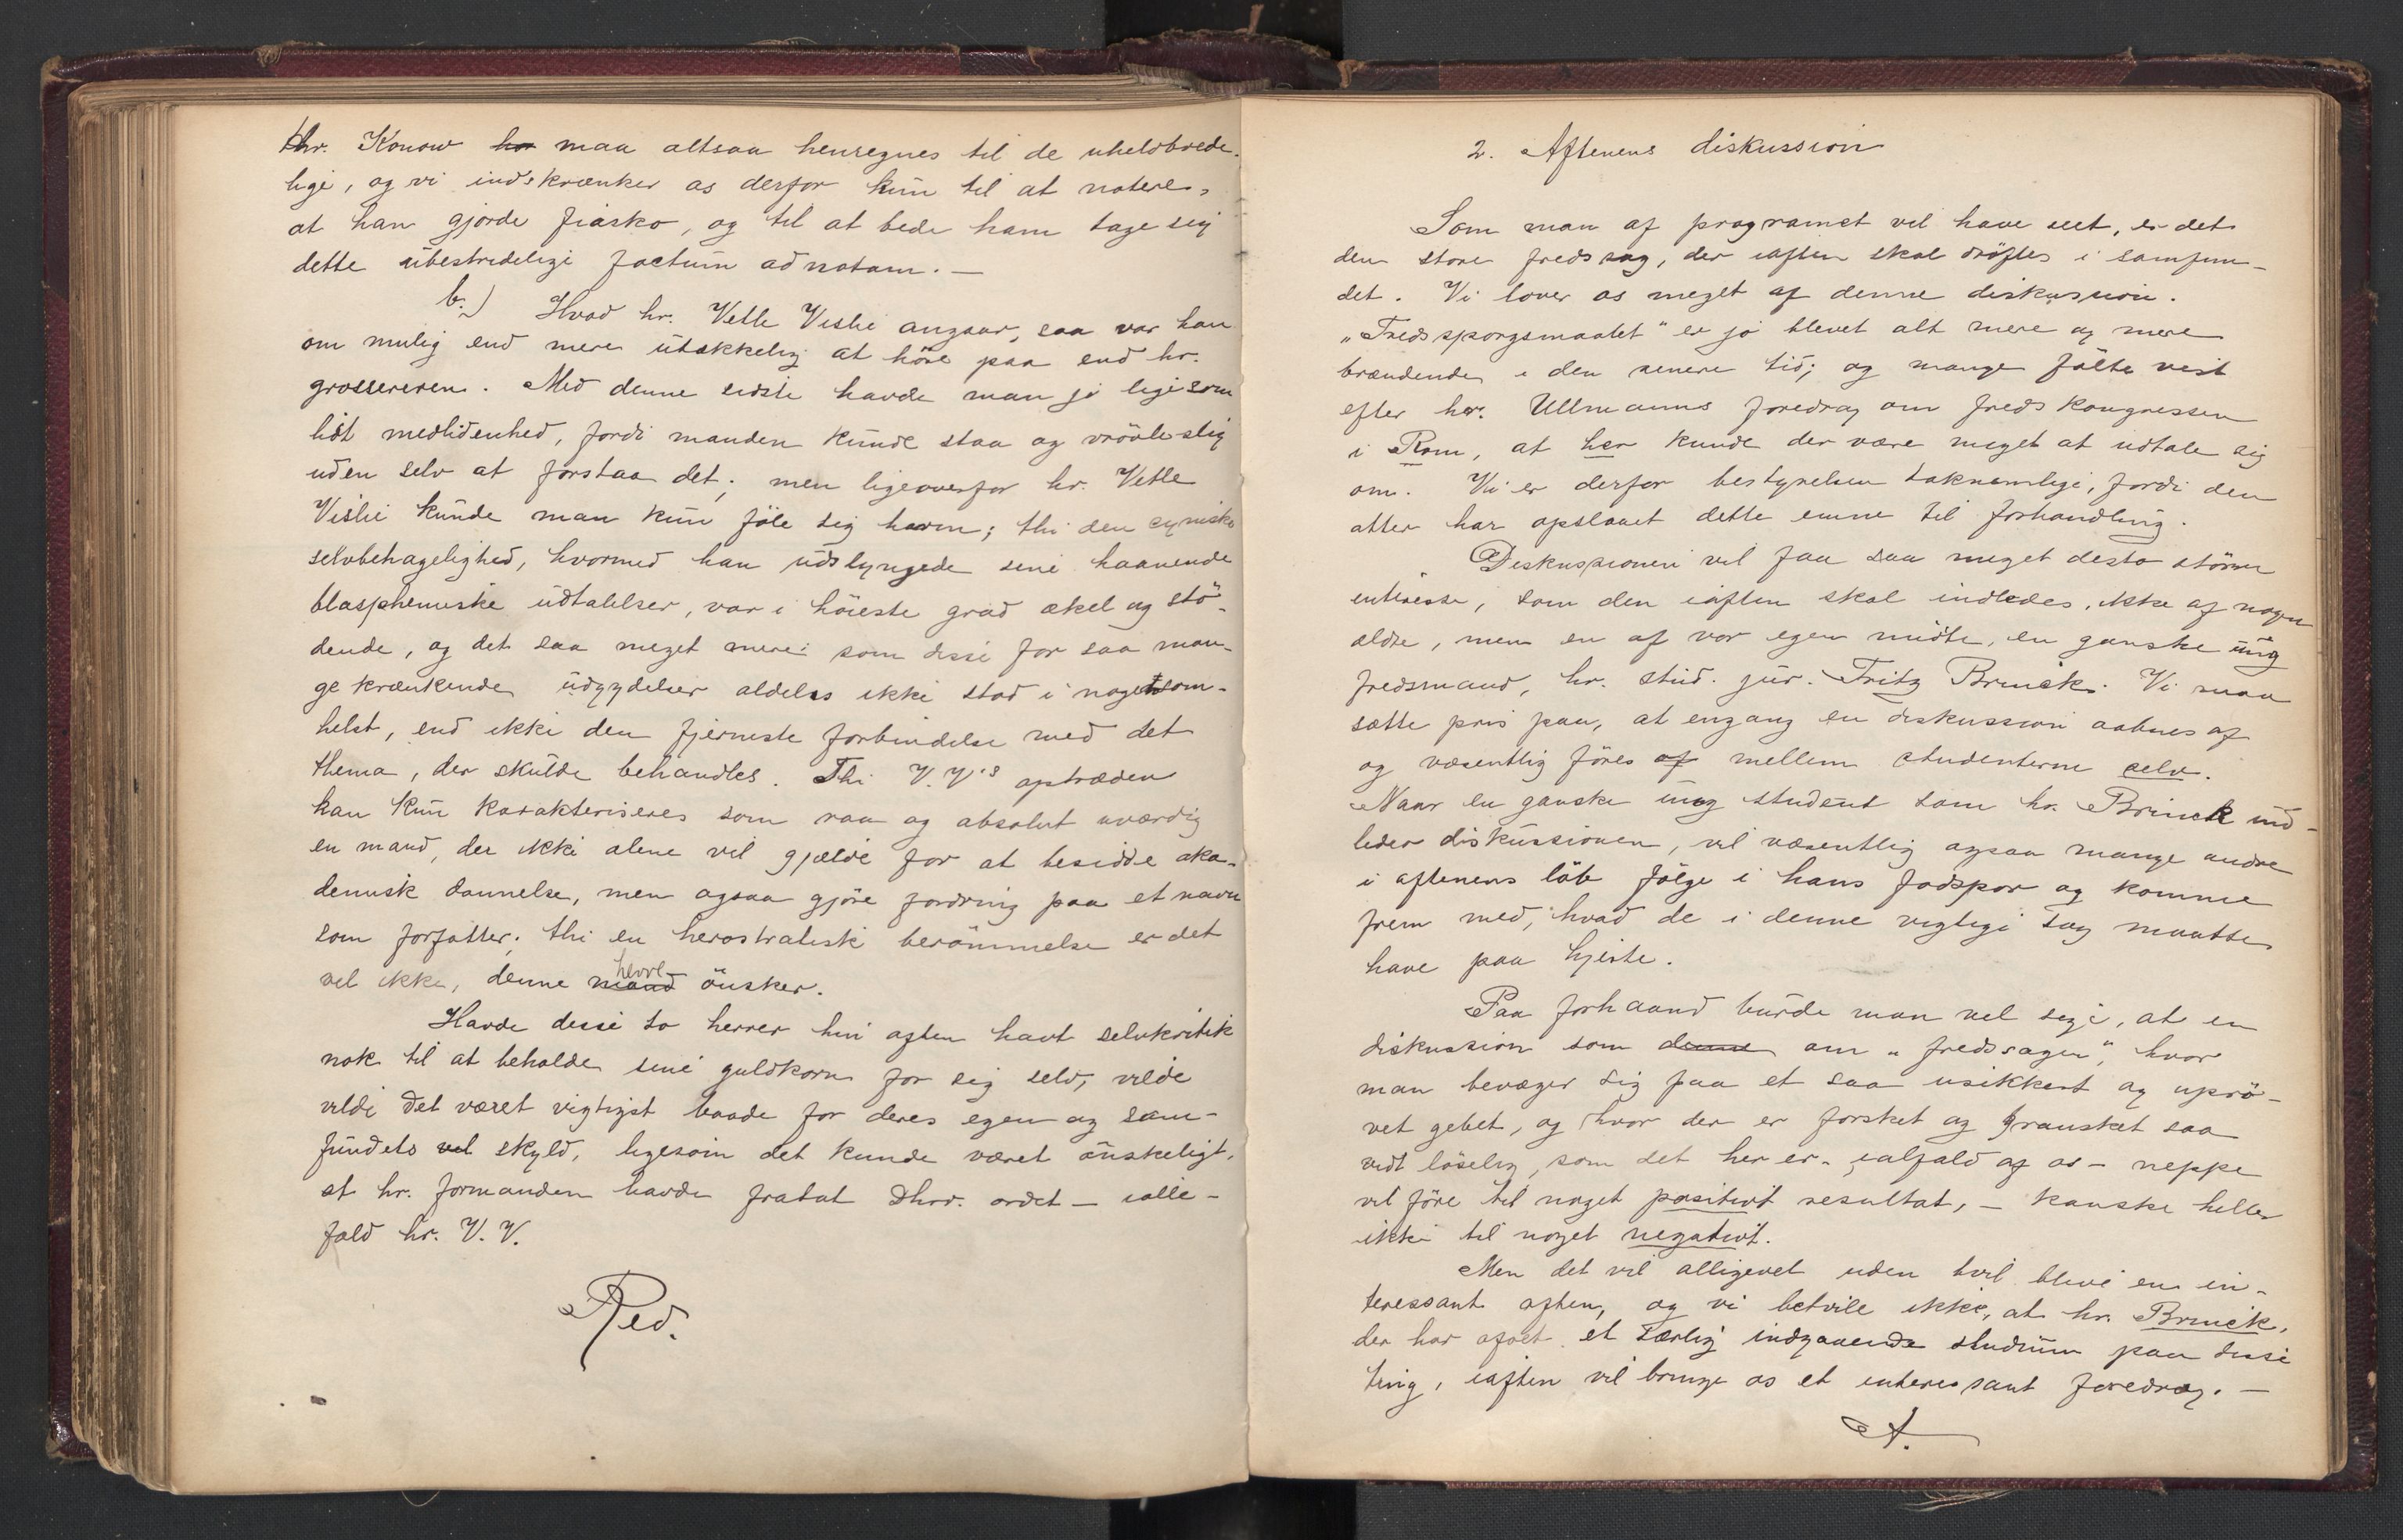 hr. Konow maa altsaa henregnes til de uhelbrede-
lige, og vi indskrænker os derfor kun til at notere,
at han gjorde fiasko, og til at bede ham tage sig
dette ubestridelige factum ad notam. —
b.) Hvad hr. Vetle Vislie angaar, saa var han
om mulig end mere utækkelig at höre paa end hr.
grossereren. Med denne sidste havde man jo ligesom
lidt medlidenhed, fordi manden kunde staa og vrövle slig
uden selv at forstaa det; men ligeoverfor hr. Vetle
Vislie kunde man kun föle sig harm; thi den cyniske
selvbehagelighed, hvormed han udslyngede sine haanende
blasphemiske udtalelser, var i höieste grad ækel og stö-
dende, og det saa meget mere som disse for saa man-
ge krænkende udgydelser aldeles ikke stod i nogetsom-
helst, end ikke den fjerneste forbindelse med det
thema, der skulde behandles. Thi V.V's optræden
kan kun karakteriseres som raa og absolut uværdig
en mand, der ikke alene vil gjælde for at besidde aka-
demisk dannelse, men ogsaa gjöre fordring paa et navn
som forfatter; thi en herostratisk berömmelse er det
vel ikke, denne mand herre önsker.
Havde disse to herrer hin aften havt selvkritik
nok til at beholde sine guldkorn for sig selv, vilde
vilde det været vigtigst baade for deres egen og sam-
fundets vel skyld, ligesom det kunde været önskeligt,
at hr. formanden havde fratat dhrr. ordet — ialle-
fald hr. V. V.
Red.
2. Aftenens diskussion
Som man af programet vil have seet, er det
den store fredssag, der iaften skal dröftes i samfun-
det. Vi lover os meget af denne diskussion.
„Fredsspörgsmaalet“ er jo blevet alt mere og mere
brændende i den senere tid; og mange fölte vist
efter hr. Ullmanns foredrag om fredskongressen
i Rom, at her kunde der være meget at udtale sig
om. Vi er derfor bestyrelsen taknemlige, fordi den
atter har opslaaet dette emne til forhandling.
Diskussionen vil faa saa meget desto större
interesse, som den iaften skal indledes, ikke af nogen
ældre, men en af vor egen midte, en ganske ung
fredsmand, hr. stud. jur. Fritz Brinck. Vi maa
sætte pris paa, at engang en diskussion aabnes af
og væsentlig föres af mellem studenterne selv.
Naar en ganske ung student som hr. Brinck ind-
leder diskussionen, vil væsentlig ogsaa mange andre
i aftenens löb fölge i hans fodspor og komme
frem med, hvad de i denne vigtige sag maatte
have paa hjerte.
Paa forhaand burde man vel sige, at en
diskussion som denne om „fredssagen“, hvor
man bevæger sig paa et saa usikkert og uprö-
vet gebet, og hvor der er forsket og gransket saa
vidt löselig, som det her er - ialfald af os - neppe
vil före til noget positivt resultat, — kanske heller
ikke til noget negativt.
Men det vil alligevel uden tvil blive en in-
teressant aften, og vi betvile ikke, at hr. Brinck,
der har ofret et særlig indgaaende studium paa disse
ting, iaften vil bringe os et interessant foredrag. —
A.